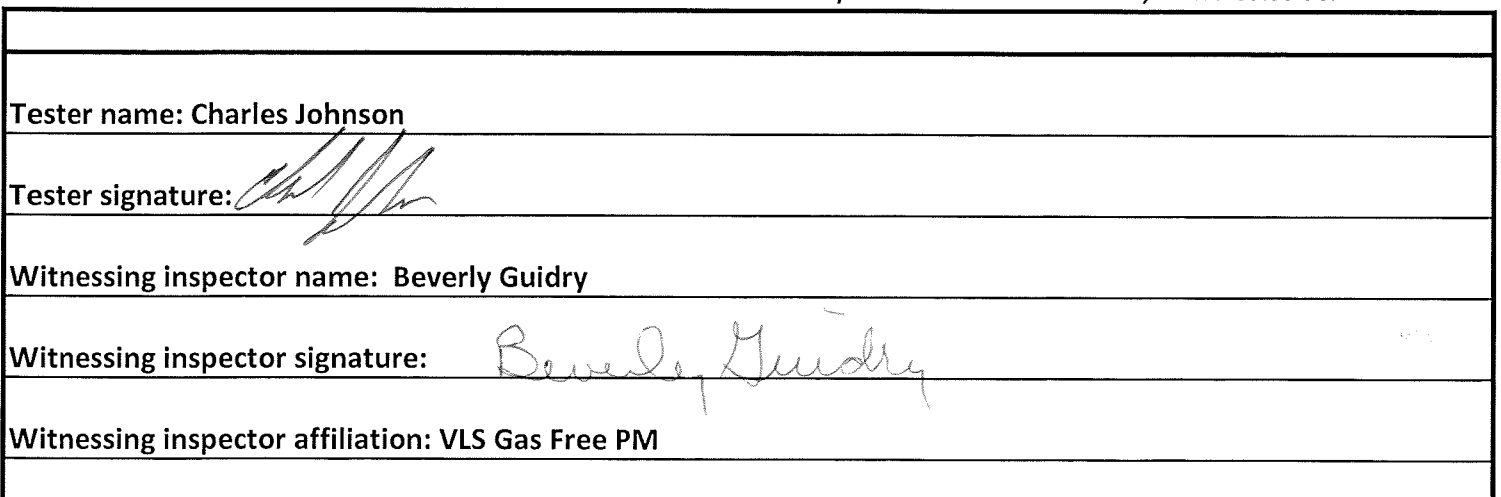 Tester name: Charles Johnson
Tester signature:
Witnessing inspector name: Beverly Guidry
Witnessing inspector signature: Beverley Guidry
Witnessing inspector affiliation: VLS Gas Free PM